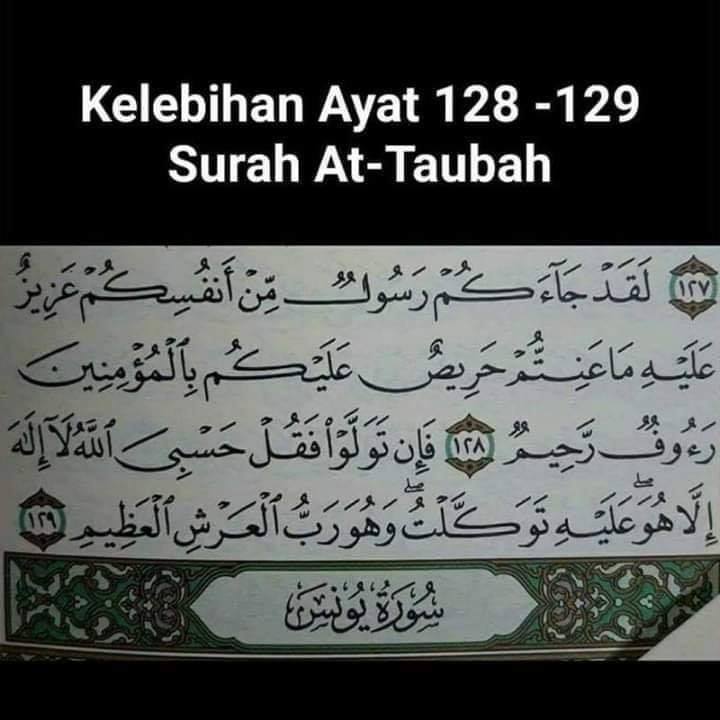 Kelebihan Ayat 128 -129
Surah At-Taubah
١٢٧ لَقَدْ جَآءَكُمْ رَسُولٌ مِّنْ أَنفُسِكُمْ عَزِيزٌ
عَلَيْهِ مَا عَنِتُّمْ حَرِيصٌ عَلَيْكُم بِٱلْمُؤْمِنِينَ
رَءُوفٌ رَّحِيمٌ ١٢٨ فَإِن تَوَلَّوْا۟ فَقُلْ حَسْبِىَ ٱللَّهُ لَآ إِلَٰهَ
إِلَّا هُوَ ۖ عَلَيْهِ تَوَكَّلْتُ ۖ وَهُوَ رَبُّ ٱلْعَرْشِ ٱلْعَظِيمِ ١٢٩
سُورَةُ يُونُسَ